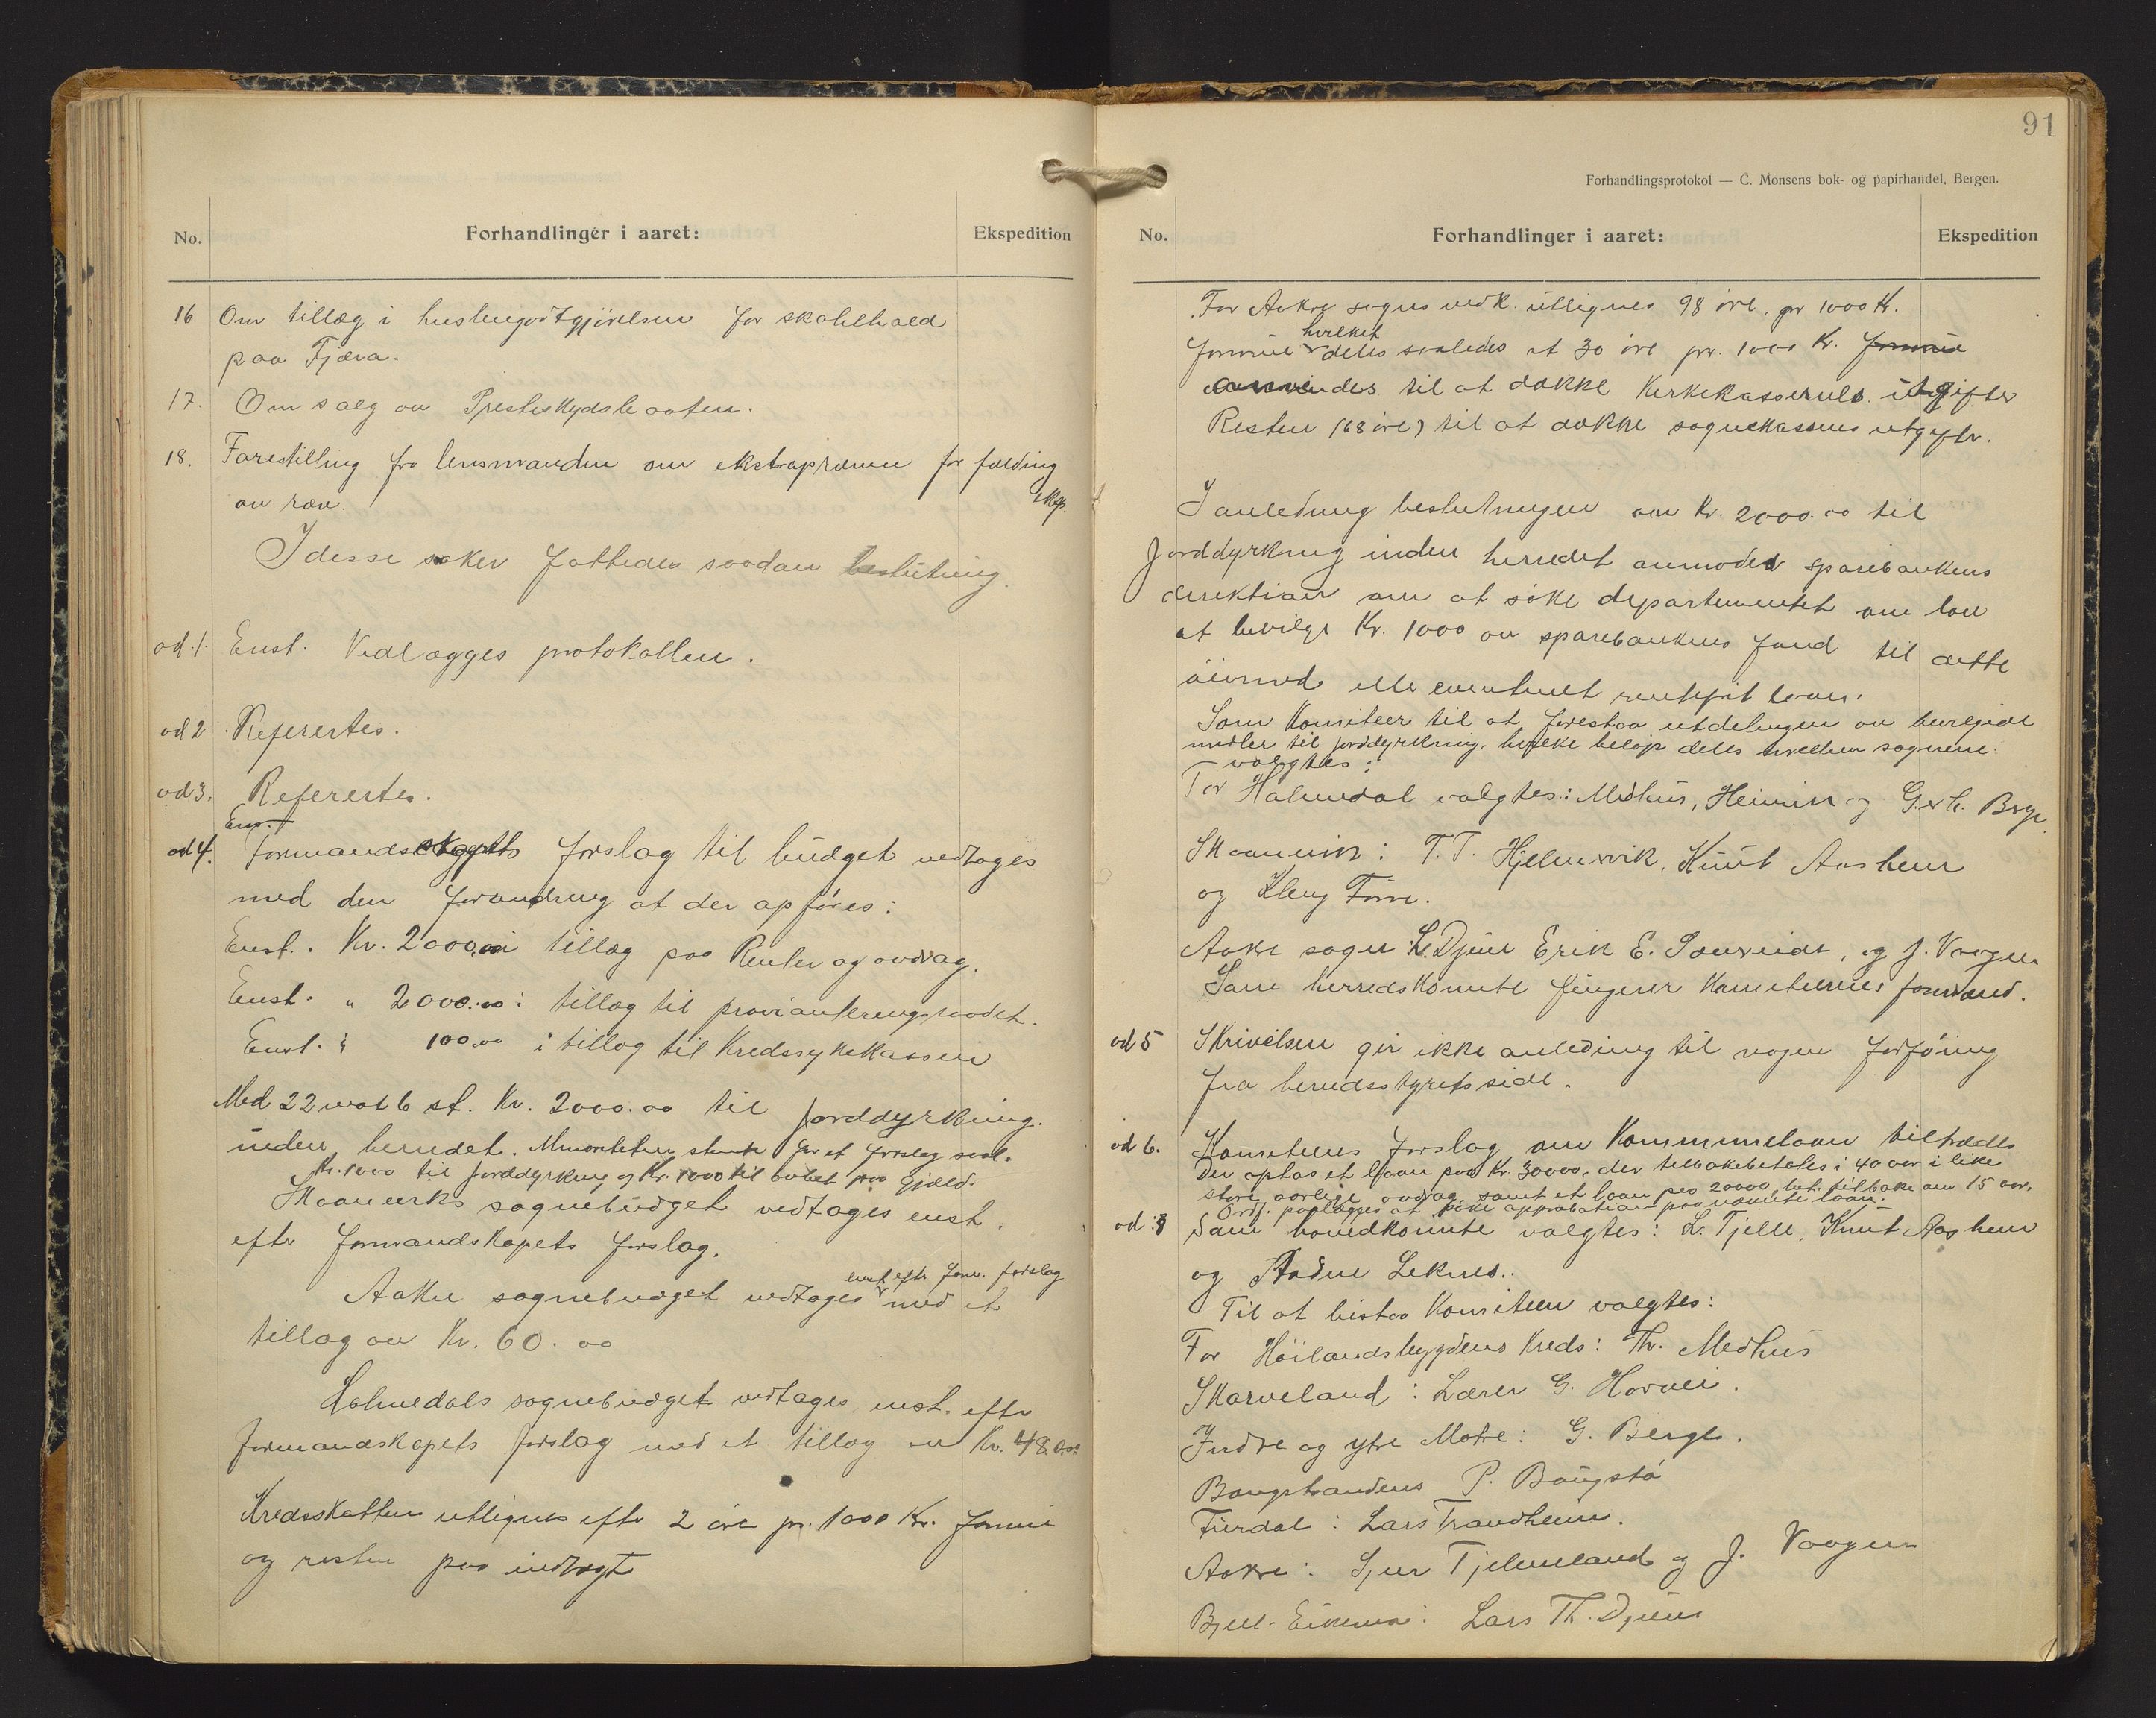 No. Forhandlinger i aaret: Ekspedition
16 Om tillæg i husleiegodtgjörelsen for skolehold
paa Fjæra.
17. Om salg av Presteskydsbaaten.
18. Forestilling fra lensmanden om ekstrapræmie for fælding
av ræv. eksp.
I disse saker fattedes saadan beslutning.
ad.1. Enst. Vedlægges protokollen.
ad 2 Refereretes.
ad 3. Refereretes.
Ens.
ad 4. Formandskapets forslag til budget vedtages
med den forandring at der opföres:
Enst. Kr. 2000.00 i tillæg paa Renter og avdrag.
Enst. " 2000.00 i tillæg til provianteringsraadet.
Enst. " 100.00 i tillæg til Kredssykekassen
Med 22 mot 6 st. Kr. 2000.00 til Jorddyrkning.
inden herredet. Minoriteten stemte for et forslag
Kr. 1000 til jorddyrkning og Kr. 1000 til avbet paa Gjæld.
Skaaneviks sognebudget vedtages enst.
efter formandskapets forslag.
enst. efter form. forslag
Aakre sognebudget vedtages med et
tillæg av Kr. 60.00
Holmedals sognebudget vedtages enst. efter
formandskapets forslag med et tillæg av Kr. 48.00
Kredsskatten utlignes efter 2 öre pr. 1000 Kr. formue
og resten paa indtægt
91
Forhandlingsprotokol — C. Monsens bok- og papirhandel, Bergen.
No. Forhandlinger i aaret: Ekspedition
For Aakre sogns vedk. utlignes 98 öre. pr 1000 Kr.
hvilket
formue deles saaledes at 30 öre pr. 1000 Kr. formue
anvendes til at dække Kirkekassernes utgifter
Resten (68 öre) til at dække sognekassens utgifter.
I anledning beslutningen om Kr. 2000.00 til
Jorddyrkning inden herredet anmodes sparebankens
direktion om at söke departementet om lov
at bevilge Kr. 1000 av sparebankens fond til dette
öiemed eller eventuelt rentefrit laan.
Som Komiteer til at forestaa utdelingen av bevilgede
midler til jorddyrkning, hvilke belöp deles mellem sognene.
valgtes:
For Holmedal valgtes: Medhus, Heimvik og G. Berge.
Skaanevik: T. T. Hjelmervik, Knut Aasheim
og Kleng Törve.
Aakre sogn: L. Djuve Erik E. Tausneidt, og J. Vaagen
Som herredskomite fungerer Komiteernes formænd.
ad 5 Skrivelsen gir ikke anledning til nogen forföining
fra herredsstyrets side.
ad 6. Komiteens forslag om Kommunelaan tiltrædes
Der optas et laan paa Kr. 30000, der tilbakebetales i 40 aar i like
store aarlige avdrag, samt et laan paa 20000, bet. tilbake om 15 aar.
Ordf. paalægges at söke approbation paa nævnte laan.
ad. 8 Som hovedkomite valgtes: L. Tjelle, Knut Aasheim
og Leknes.
Til at bistaa Komiteen valgtes:
For Höilandsbygdens Kreds: Th. Medhus
Skarveland: Lærer G. Hovnei.
Indre og ytre Matre: G. Berge.
Baugstrandens P. Baugstö
Fuirdal: Lars Trandheim.
Aakre: Sjur Tjelmeland og J. Vaagen
Bjell-Eikemo: Lars Th. Djuve